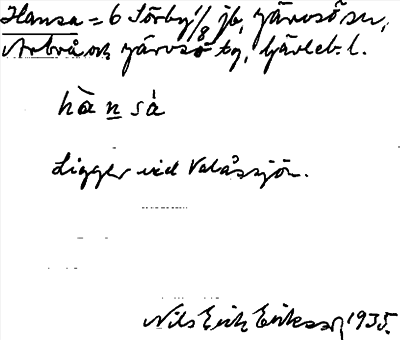 Hansa = 6 Förby 1/8 jb, Järvsö sn,
Arbrå och Järvsö tg, Gävleb. l.
hànsá
Ligger vid Valåssjön.
Nils Erik Eriksson 1935.